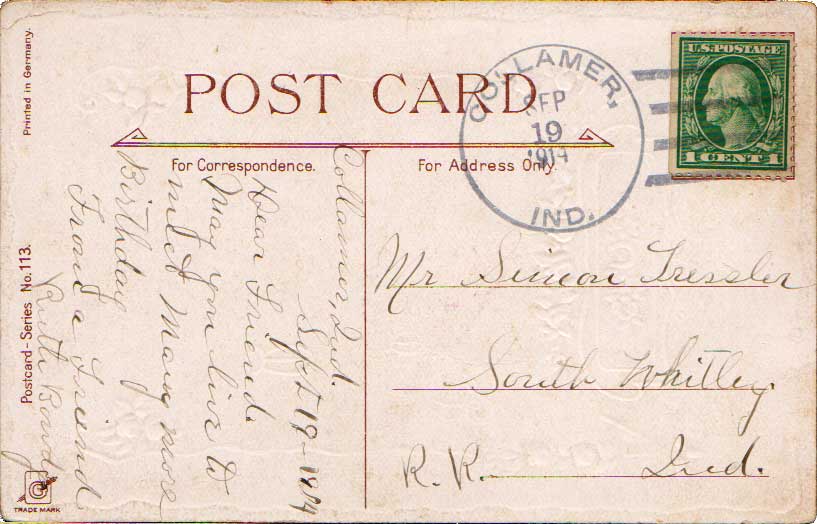 Printed in Germany.
POST CARD
COLLAMER,
SEP
19
1914
IND.
U.S. POSTAGE
1 CENT 1
For Correspondence.
For Address Only.
Collamer, Ind.
Sept 19-1914
Dear Friend.
May you live to
meet Many more
Birthday
From a Friend
Ruth
Mr Simeon Tressler
South Whitley.
R.R. Ind.
Postcard-Series No. 113.
TRADE MARK